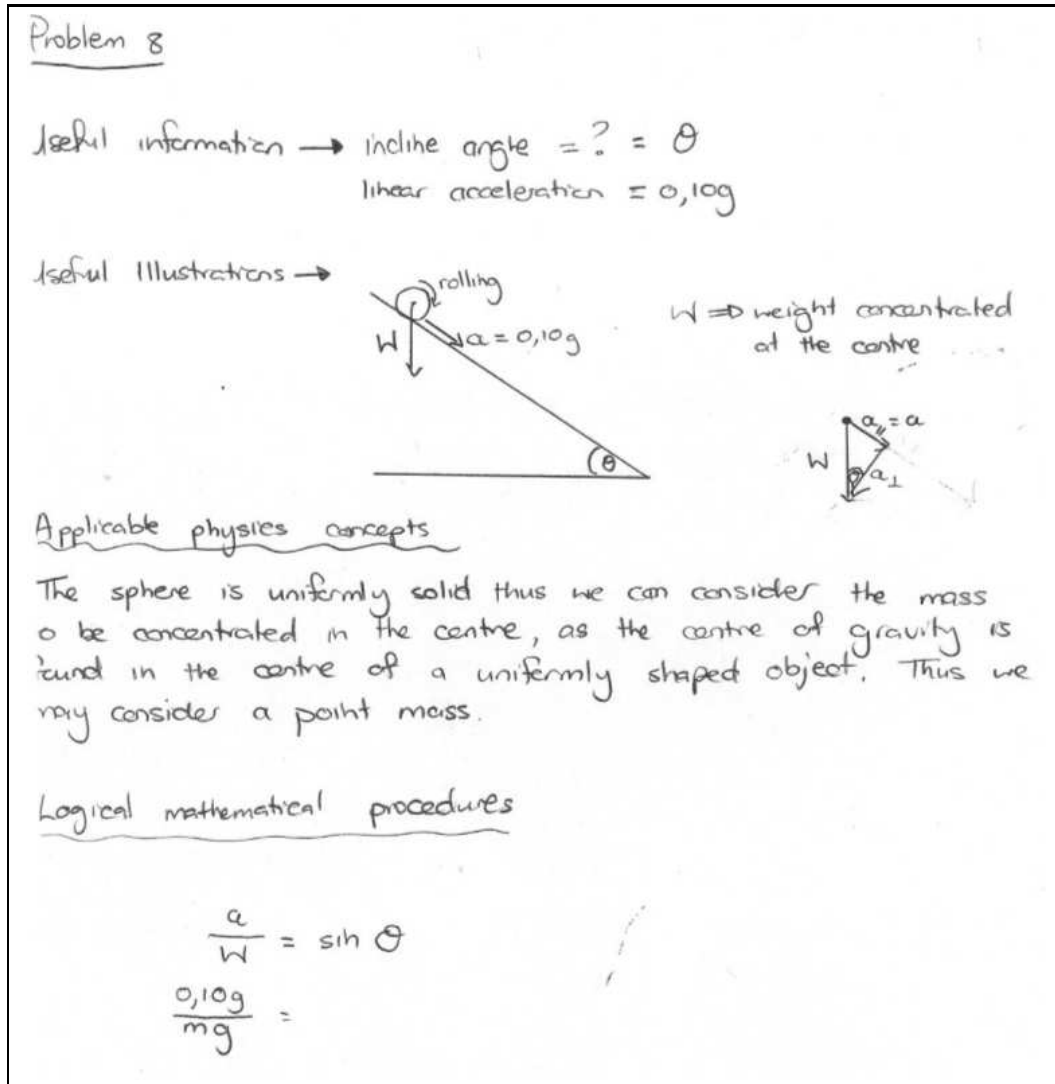 Problem 8
Useful information → incline angle = ? = θ
linear acceleration = 0,10g
Useful Illustrations →
rolling
W
a = 0,10g
θ
W ⇒ weight concentrated
at the centre
a∥ = a
W
θ
a⊥
Applicable physics concepts
The sphere is uniformly solid thus we can consider the mass
o be concentrated in the centre, as the centre of gravity is
ound in the centre of a uniformly shaped object. Thus we
may consider a point mass.
Logical mathematical procedures
a/W = sin θ
0,10g/mg =